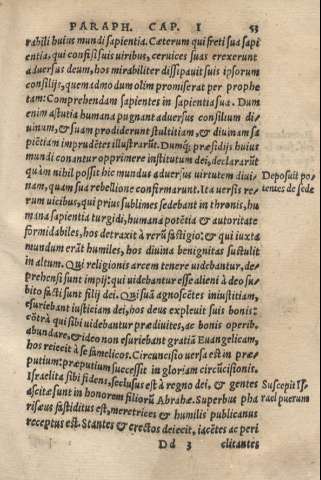 PARAPH. CAP. I 53
rabili huius mundi sapientia. Cæterum qui freti sua sapi
entia, qui confisi suis uiribus, ceruices suas erexerunt
aduersus deum, hos mirabiliter dissipauit suis ipsorum
consilijs, quemadmodum olim promiserat per prophe
tam: Comprehendam sapientes in sapientia sua. Dum
enim astutia humana pugnant aduersus consilium di-
uinum, & suam prodiderunt stultitiam, & diuinam sa
pietiam imprudẽtes illustrarũt. Dumq; præsidijs huius
mundi conantur opprimere institutum dei, declararũt
quàm nihil possit hic mundus aduersus uirtutem diui-
nam, quam sua rebellione confirmarunt. Ita uersis re-
rum uicibus, qui prius sublimes sedebant in thronis, hu
mana sapientia turgidi, humana potẽtia & autoritate
formidabiles, hos detraxit à rerũ fastigio: & qui iuxta
mundum erãt humiles, hos diuina benignitas sustulit
in altum. Qui religionis arcem tenere uidebantur, de-
prehensi sunt impij: qui uidebantur esse alieni à deo su-
bito facti sunt filij dei. Qui suã agnoscẽtes iniustitiam,
esuriebant iusticiam dei, hos deus expleuit suis bonis:
cõtrà qui sibi uidebantur prædiuites, ac bonis operib.
abundare, & ideo non esuriebant gratiã Euangelicam,
hos reiecit à se famelicos. Circuncisio uersa est in præ-
putium: præputium successit in gloriam circũcisionis.
Israelitæ sibi fidens, seclusus est à regno dei, & gentes
ascitæ sunt in honorem filiorũ Abrahæ. Superbus pha
risæus fastiditus est, meretrices & humilis publicanus
receptus est. Stantes & erectos deiecit, iacẽtes ac peri
Dd 3 clitantes
Deposuit po-
tentes de sede
Suscepit Is-
rael puerum